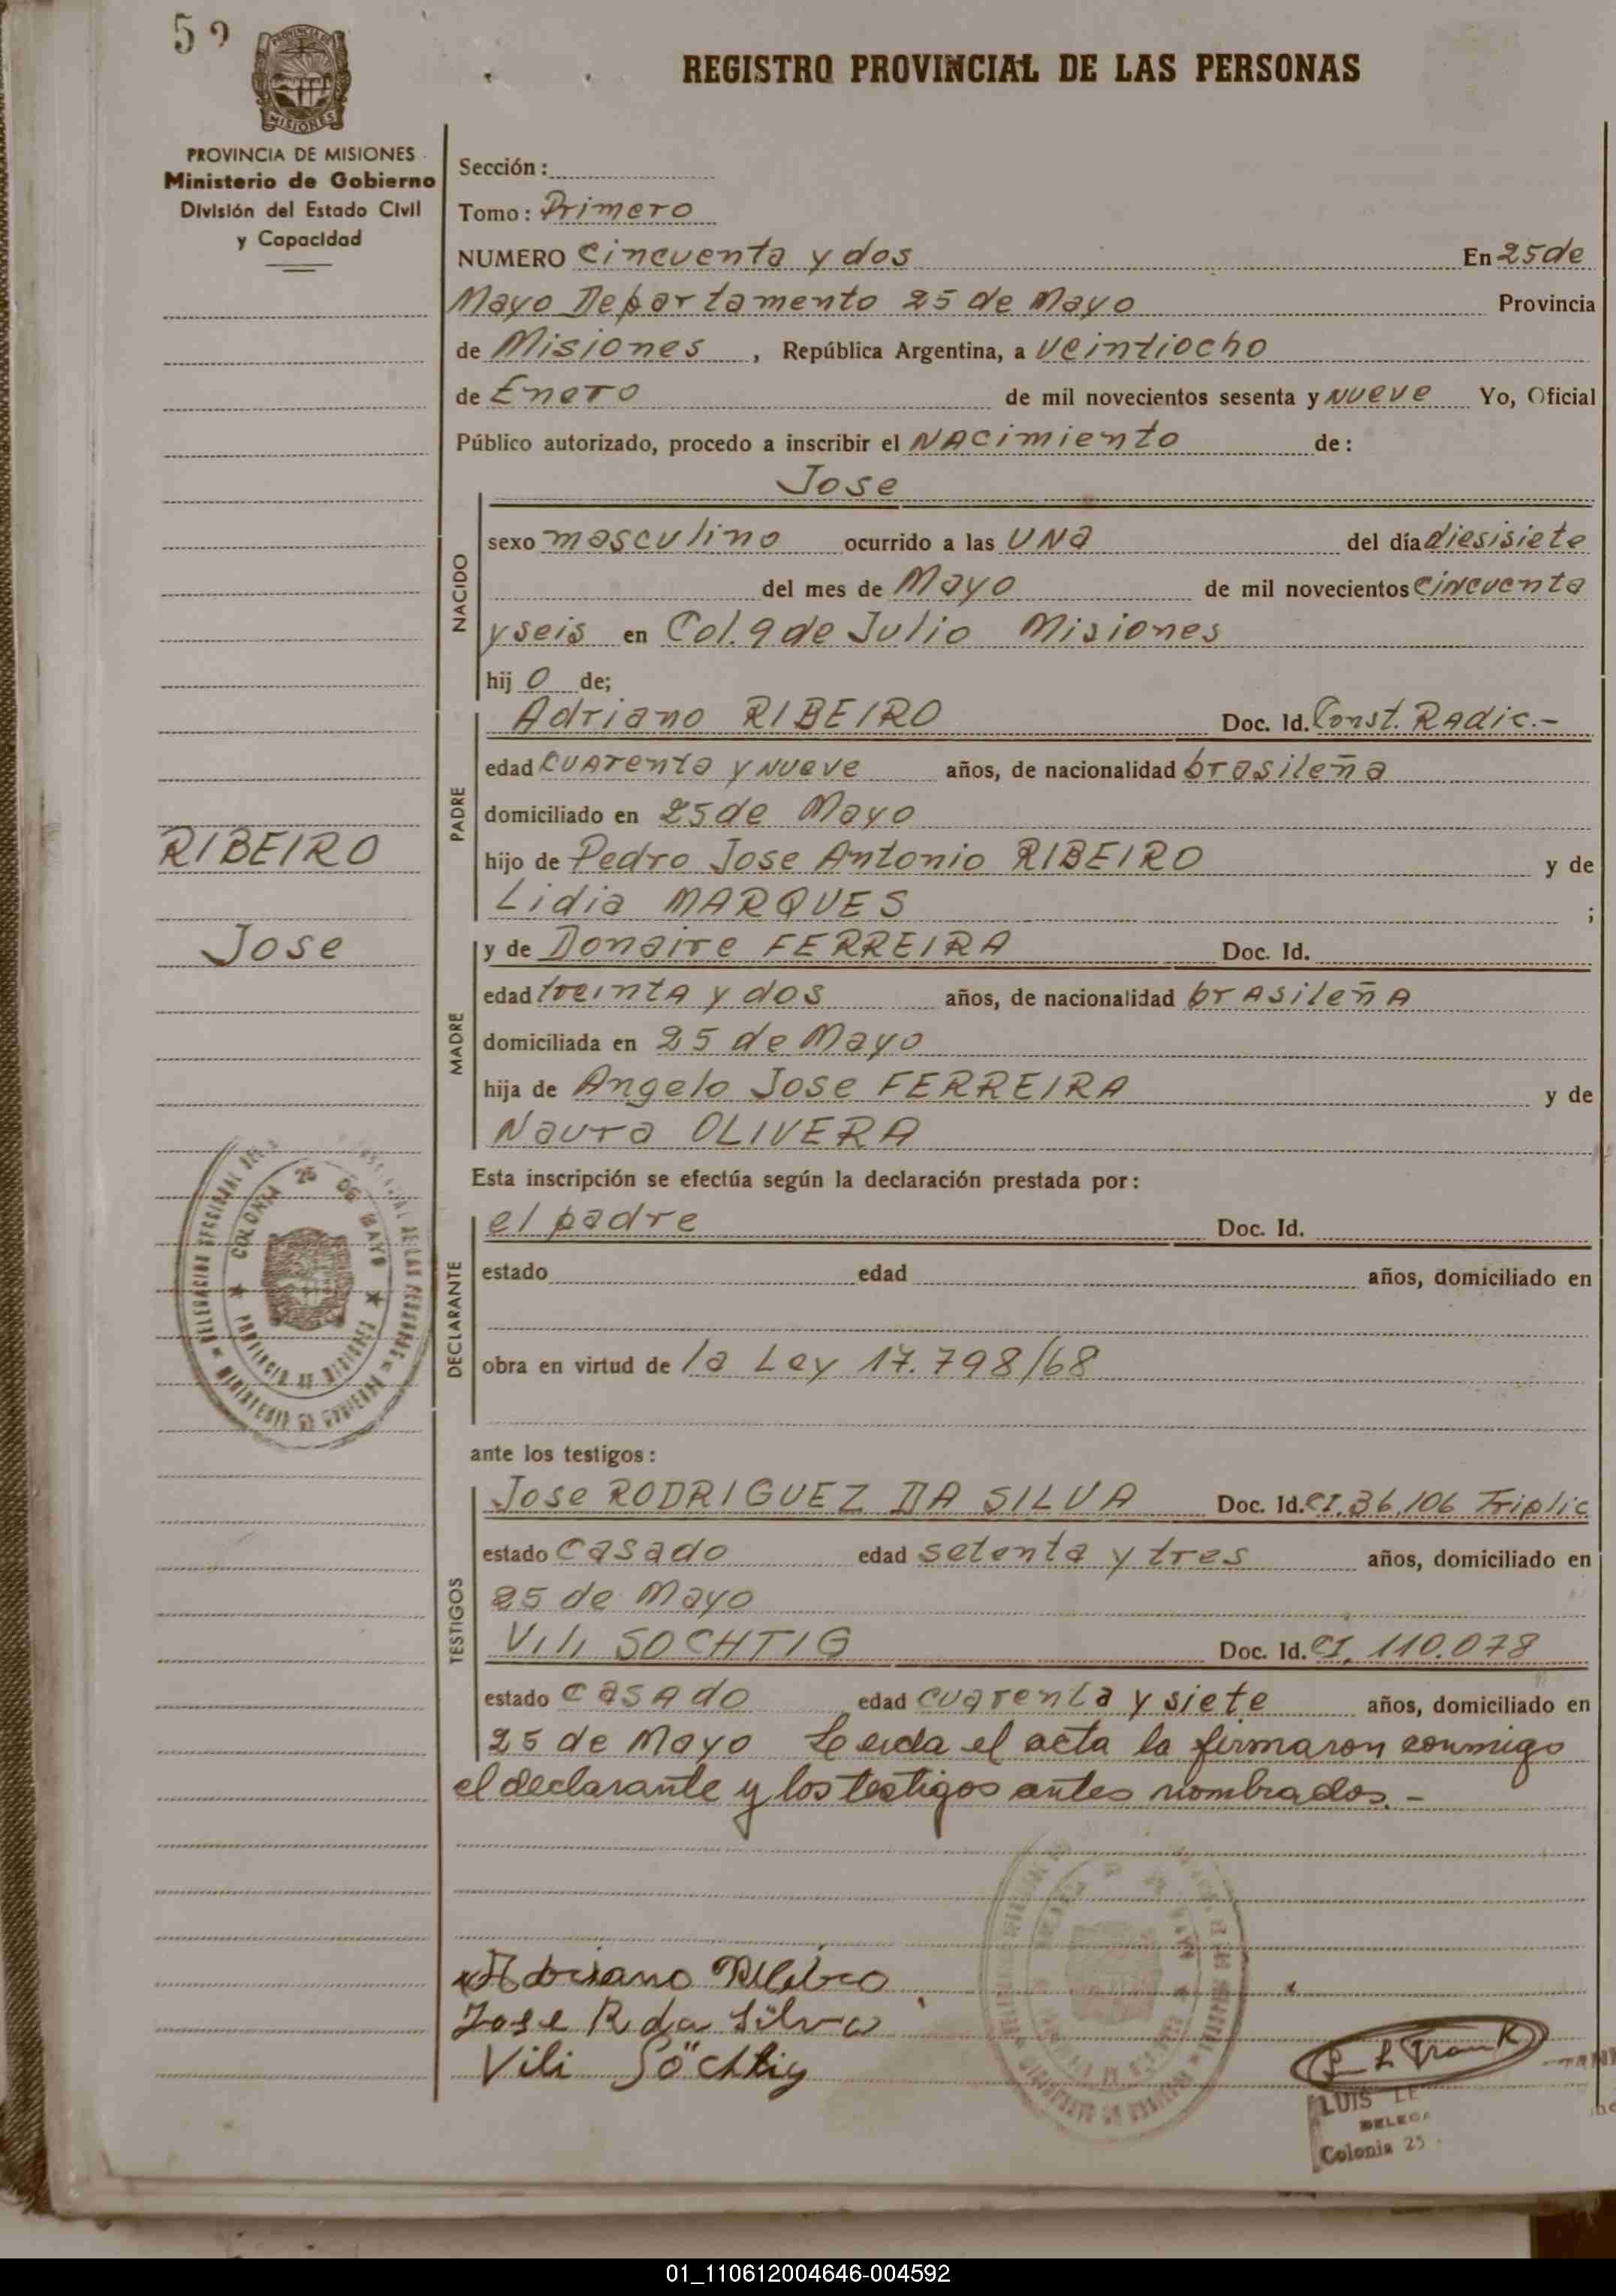 52
PROVINCIA DE MISIONES
PROVINCIA DE MISIONES
Ministerio de Gobierno
División del Estado Civil
y Capacidad
REGISTRO PROVINCIAL DE LAS PERSONAS
Sección:
Tomo: Primero
NUMERO Cincuenta y dos En 25 de
Mayo Departamento 25 de Mayo Provincia
de Misiones, República Argentina, a veintiocho
de Enero de mil novecientos sesenta y nueve Yo, Oficial
Público autorizado, procedo a inscribir el NAcimiento de:
Jose
NACIDO
sexo masculino ocurrido a las UNa del día diesisiete
del mes de Mayo de mil novecientos cincuenta
y seis en Col. 9 de Julio Misiones
hijo de;
PADRE
Adriano RIBEIRO Doc. Id. Const. RAdic.-
edad cuarenta y nueve años, de nacionalidad brasileña
domiciliado en 25 de Mayo
hijo de Pedro Jose Antonio RIBEIRO y de
Lidia MARQUES ;
RIBEIRO
Jose
MADRE
y de Donaire FERREIRA Doc. Id.
edad treinta y dos años, de nacionalidad brasileña
domiciliada en 25 de Mayo
hija de Angelo Jose FERREIRA y de
Naura OLIVERA
Esta inscripción se efectúa según la declaración prestada por:
DECLARANTE
el padre Doc. Id.
estado edad años, domiciliado en
obra en virtud de la Ley 17.798/68
COLONIA 25 DE MAYO
PROVINCIA DE MISIONES
DELEGACION SECCIONAL DE LAS PERSONAS
MINISTERIO DE GOBIERNO
ante los testigos:
TESTIGOS
Jose RODRIGUEZ DA SILVA Doc. Id. CI. 36.106 Triplic
estado casado edad setenta y tres años, domiciliado en
25 de Mayo
Vili SOCHTIG Doc. Id. CI. 110.078
estado casado edad cuarenta y siete años, domiciliado en
25 de Mayo Leida el acta la firmaron conmigo
el declarante y los testigos antes nombrados.-
Adriano Ribeiro
Jose R da Silva
Vili Söchtig
L Frank
LUIS LE
DELEGA
Colonia 25
01_110612004646-004592